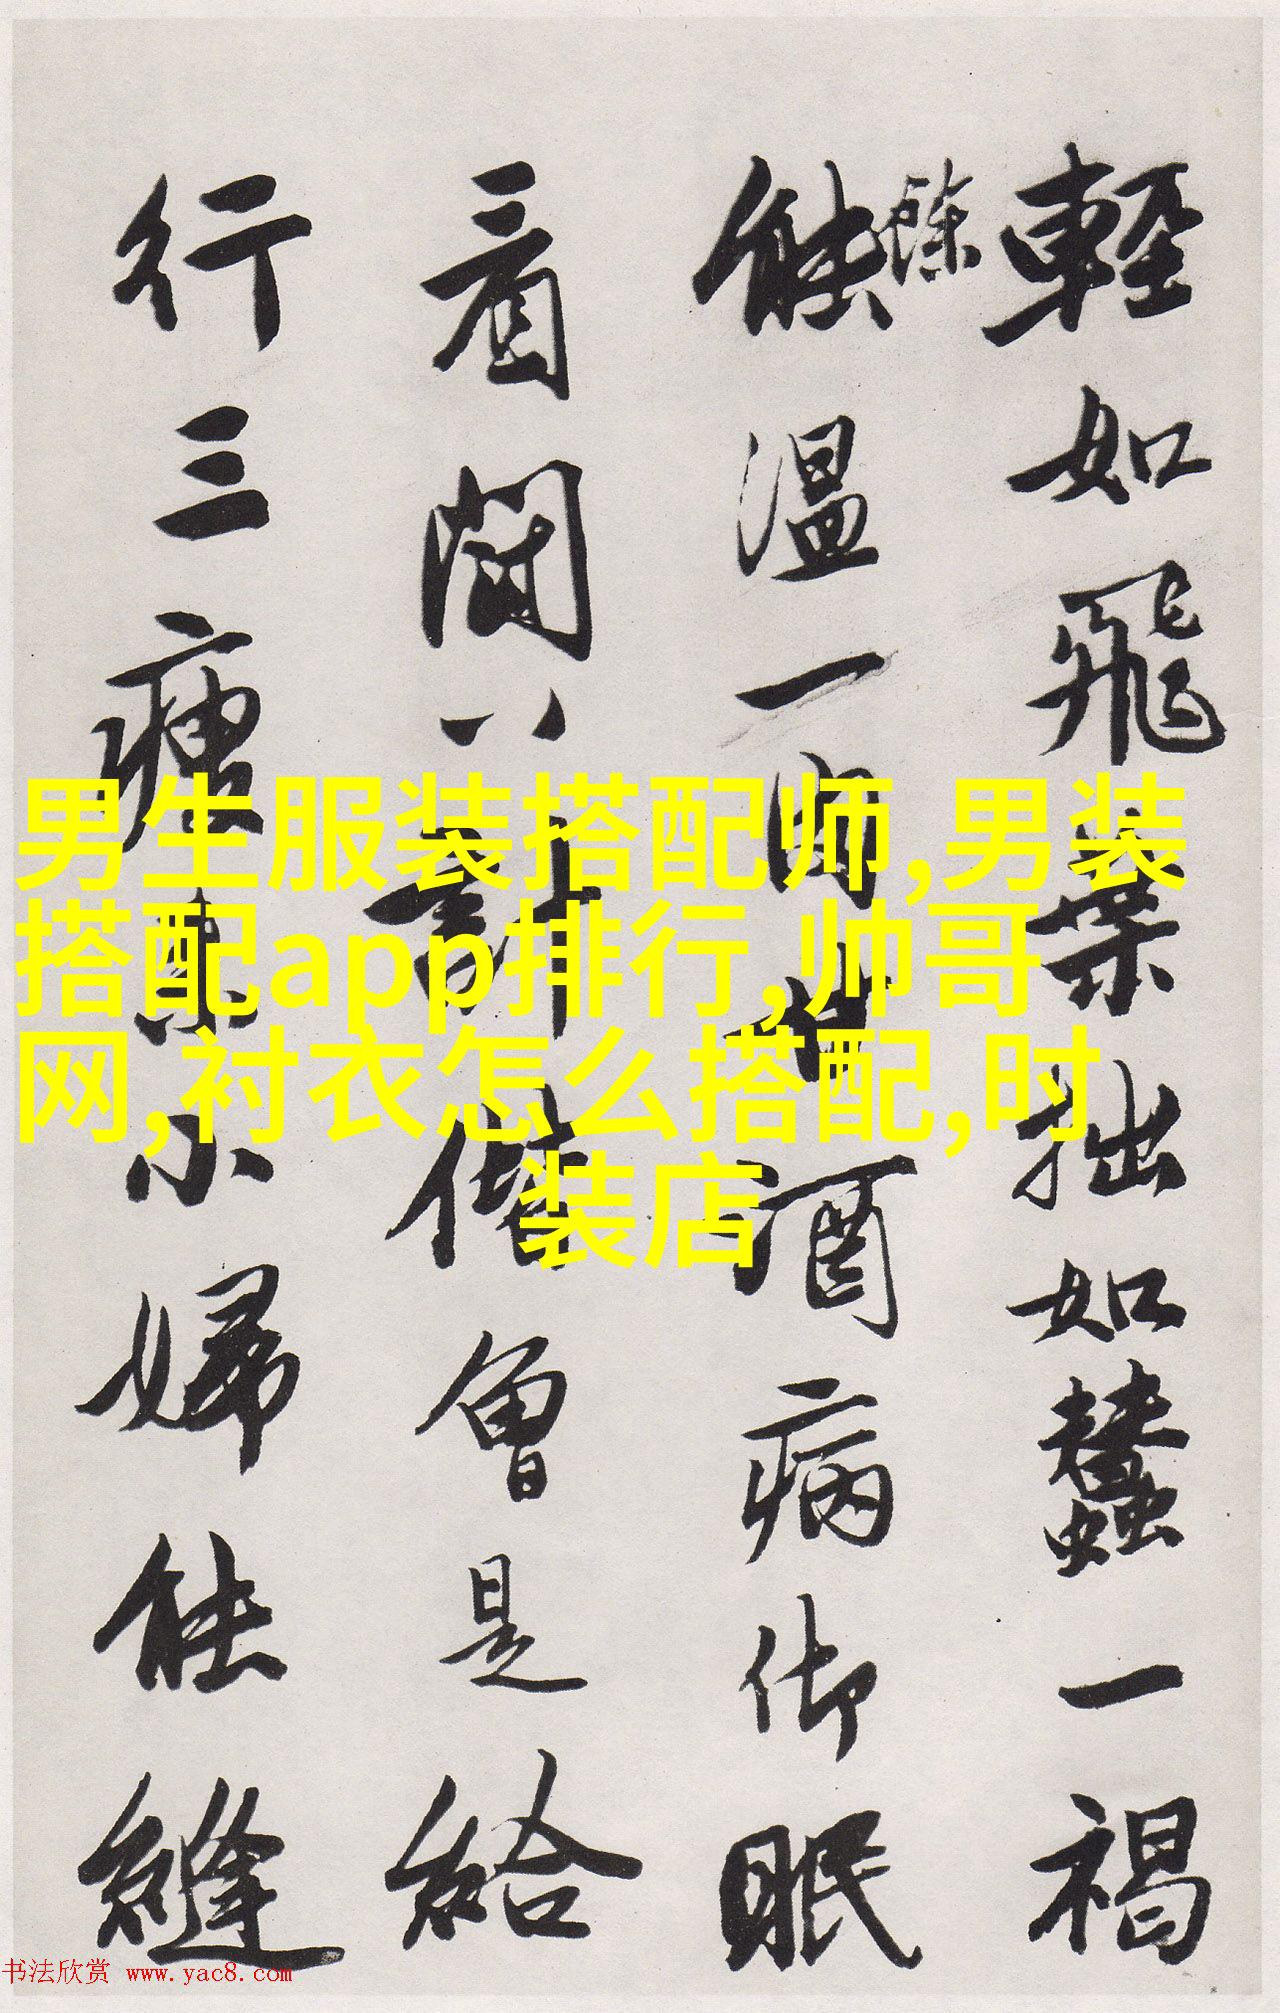 輕如飛葉拙如蠶一褐
餘
能溫一肉酒病御眠
看計偕曾是給
行三瘦小婦能縫
男生服装搭配师,男装
搭配app排行,帅哥
网,衬衣怎么搭配,时
装店
书法欣赏 www.yac8.com